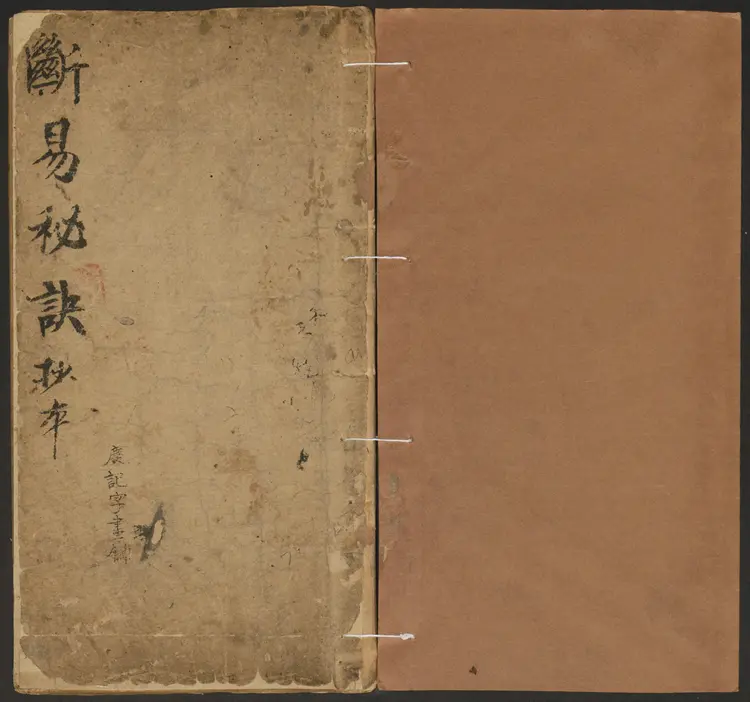 斷易秘訣抄本
廣記字畫舖